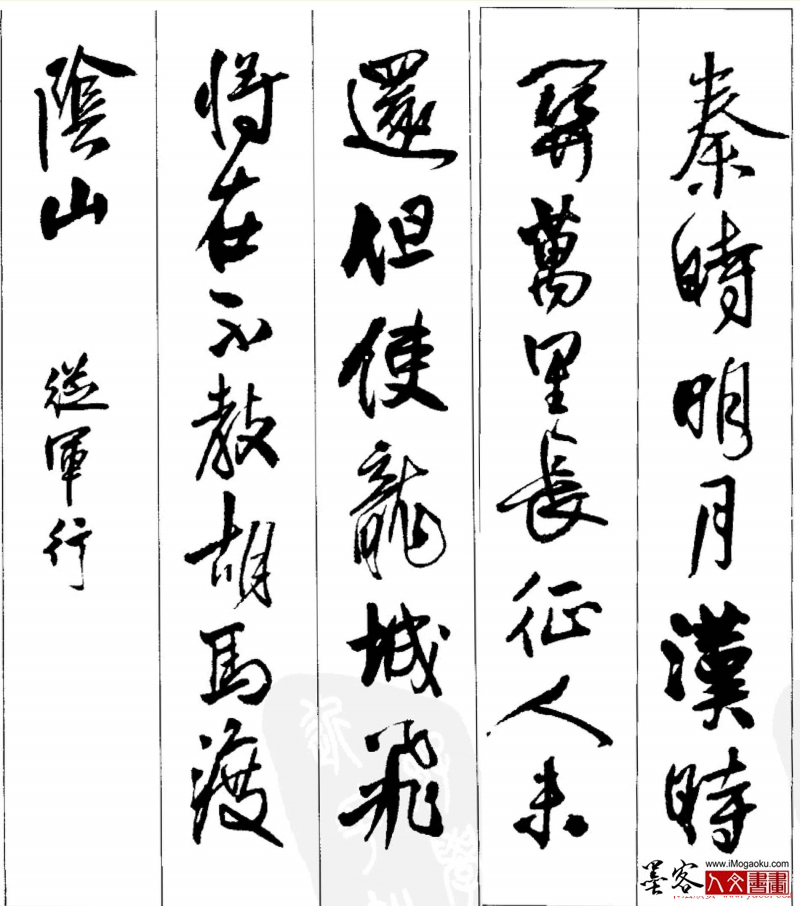 秦時明月漢時
關萬里長征人未
還但使龍城飛
將在不教胡馬渡
陰山 從軍行
墨客
www.iMogaoku.com
人文書畫